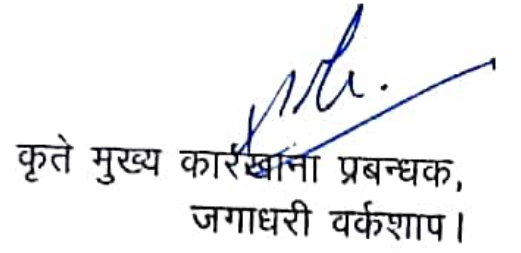 कृते मुख्य कारखाना प्रबन्धक,
जगाधरी वर्कशाप।